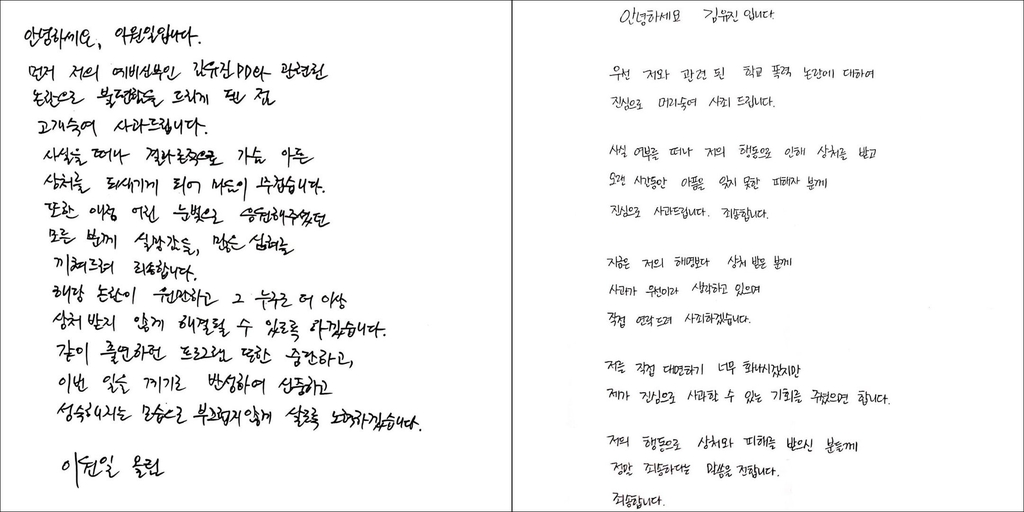 안녕하세요, 이원일입니다.
먼저 저의 예비신부인 김유진PD와 관련된
논란으로 불편함을 드리게 된 점
고개숙여 사과드립니다.
사실을 떠나 결과론적으로 가슴 아픈
상처를 되새기게 되어 마음이 무겁습니다.
또한 애정 어린 눈빛으로 응원해주었던
모든 분께 실망감을, 많은 심려를
끼쳐드려 죄송합니다.
해당 논란이 원만하고 그 누구도 더 이상
상처 받지 않게 해결될 수 있도록 하겠습니다.
같이 출연하던 프로그램 또한 중단하고,
이번 일을 계기로 반성하여 신중하고
성숙해지는 모습으로 부끄럽지않게 살도록 노력하겠습니다.
이원일 올림
안녕하세요 김유진 입니다.
우선 저와 관련 된 학교 폭력 논란에 대하여
진심으로 머리숙여 사죄 드립니다.
사실 여부를 떠나 저의 행동으로 인해 상처를 받고
오랜 시간동안 아픔을 잊지 못한 피해자 분께
진심으로 사과드립니다. 죄송합니다.
지금은 저의 해명보다 상처 받은 분께
사과가 우선이라 생각하고 있으며
직접 연락드려 사죄하겠습니다.
저를 직접 대면하기 너무 화나시겠지만
제가 진심으로 사과할 수 있는 기회를 주셨으면 합니다.
저의 행동으로 상처와 피해를 받으신 분들께
정말 죄송하다는 말씀을 전합니다.
죄송합니다.